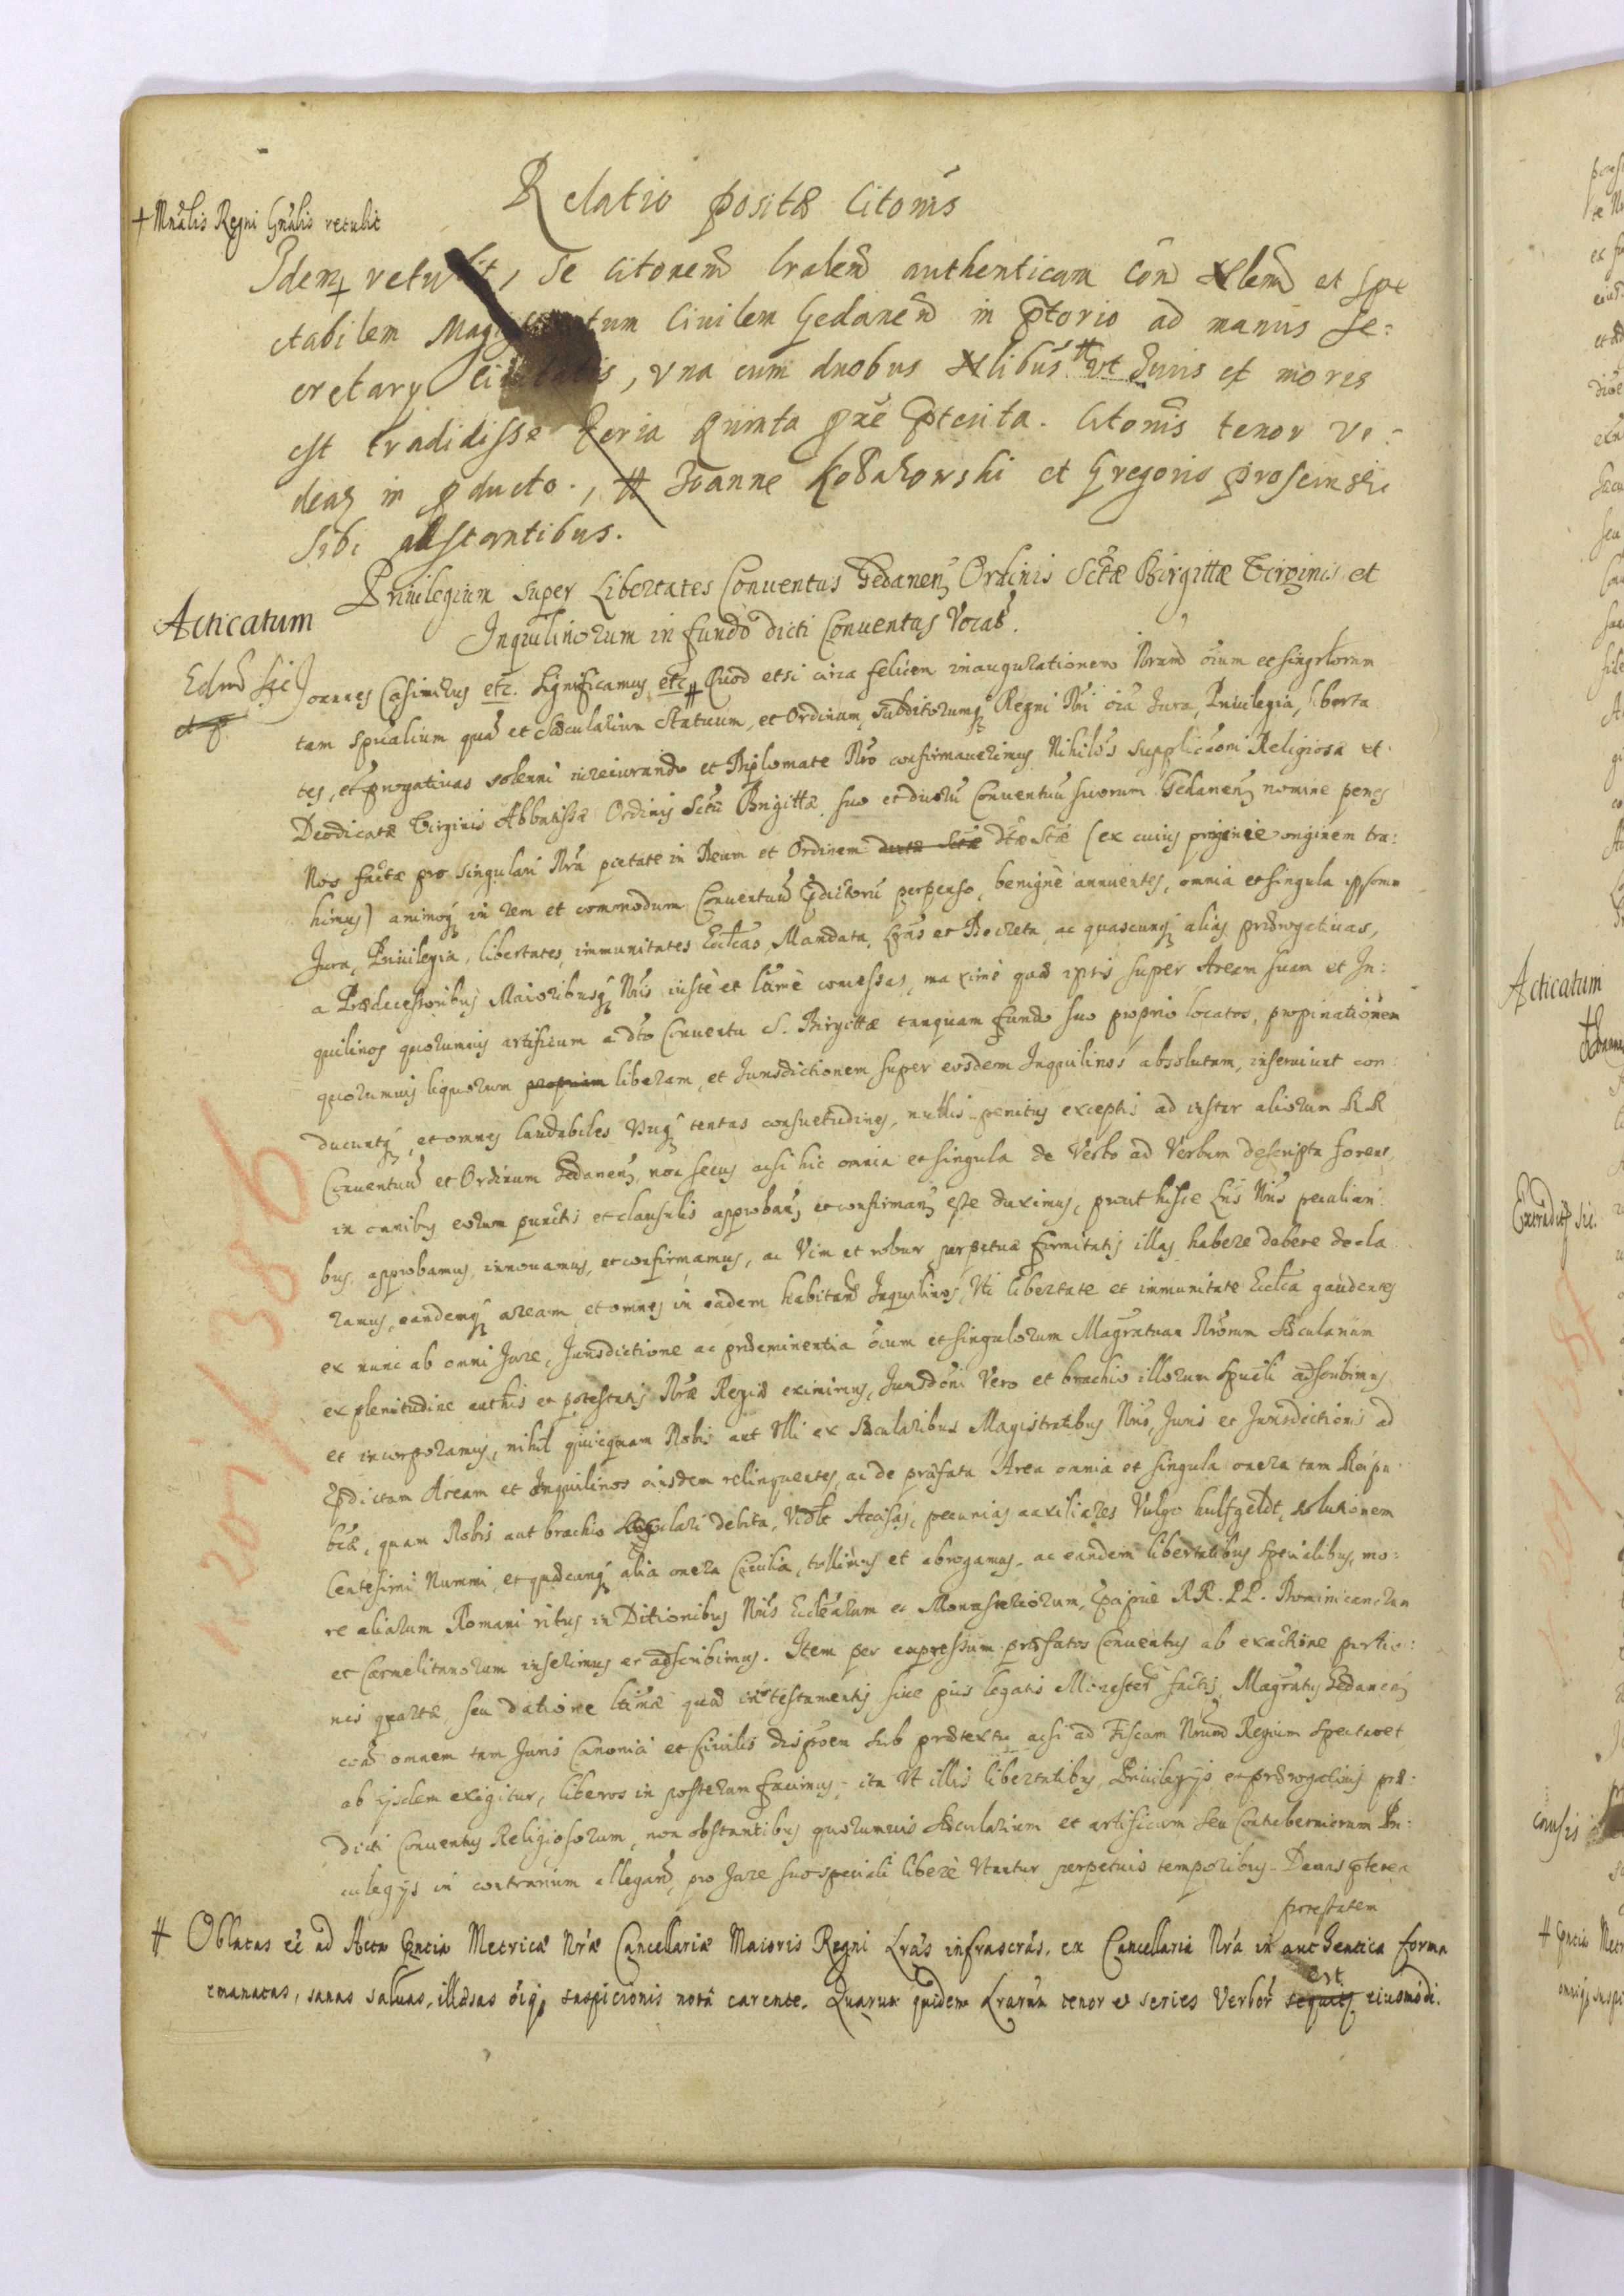 Relatio positæ Citonis
+ Mnãlis Regni Gnãlis retulit
Idem + retulit, se Citonem lralem authenticam Con Nlem et Spe
ctabilem Magistratum Ciuilem Gedanen in Ptorio ad manus Se:
cretary Ciuitatis, vna cum duobus Nlibus # vt Juris et moris
est tradidisse Feria Quinta pxe Pterita. Citonis tenor vi:
deaz in pducto., # Joanne Kobakowski et Gregorio
Sibi adstantibus.
Priuilegium super Libertates Conuentus Gedanen Ordinis Sctæ Birgittæ Virginis et
Acticatum
Inquilinorum in fundo dicti Conuentus Vocat.
Joannes Casimirus etc. Significamus etc # Quod etsi circa felicem inaugurationem Nram oium et singulorum
tam spualium quã et Sæcularium Statuum, et Ordinum, subditorumq Regni Nri oia Jura, Priuilegia, liberta
tes, et prrogatiuas solenni iureiurando et Diplomate Nro confirmauerimus Nihilos supplicaoni Religiosæ et
Deodicatæ Virginis Abbatissæ Ordinis Sctæ Brigittæ, suo et duoru Conuentuu suorum Gedanen nomine penes
Nos factæ pro singulari Nra pietate in Deum et Ordinem dictæ Sctæ dtæ Stæ (ex cuius progenie originem tra:
himus) animoq in rem et commodum Conuentuu Pdictoru perpenso, benignè annuentes, omnia et singula ipsorum
Jura, Priuilegia, libertates, immunitates Ecclcas, Mandata, Lras et Decreta, ac quascunq alias prærogatiuas,
a Prædecessoribus Maioribusq Nris iustè et ltimè concessas, maximè quæ ipsis super Aream suam et In:
quilinos quorumuis artificum a dto Conuentu S. Birgittæ tanquam fundo suo proprio locatos, propinationem
quorumuis liquorum propriam liberam, et Jurisdictionem super eosdem Inquilinos absolutam, inseruiunt con:
ducuntq, et omnes laudabiles usuq tentas consuetudines, nullis penitus exceptis ad instar aliorum RR
Conuentuu et Ordinum Gedanen, non secus acsi hic omnia et singula de Verbo ad Verbum descripta forent,
in omnibus eorum punctis et clausulis approban, et confirman, esse duximus, prout hisce Lris Nris peculiari
bus, approbamus, innouamus, et confirmamus, ac Vim et robur perpetuæ firmitatis illas habere debere decla
ramus, eandemq aream et omnes in eadem habitan Inquilinos, Vti libertate et immunitate Ecclca gaudentes
ex nunc ab omni Jure, Jurisdictione ac præeminentia oium et singulorum Magratuum Nrorum Sæcularium
ex plenitudine authis et potestatis Nræ Regiæ eximimus, Jurisdoni Vero et brachio illorum Spuali adscribimus
et incorporamus, nihil quicquam Nobis aut Vlli ex Sæcularibus Magistratibus Nris, Juris et Jurisdictionis ad
Pdictam Aream et Inquilinos eiusdem relinquentes, ac de præfata Area omnia et singula onera tam Reipu
bcæ, quam Nobis aut brachio Sæculari debita, Vidlt Accisas, pecunias auxiliares Vulgo hulfgeldt, solutionem
Centesimi Nummi, et quæcunq alia onera Ciuilia, tollimus et abrogamus, ac eandem libertatibus specialibus, mo:
re aliarum Romani ritus in Ditionibus Nris Ecclearum et Monasteriorum, Pcipuè RR. PP. Dominicanorum
et Carmelitanorum inserimus et adscribimus. Item per expressum præfatos Conuentus ab exactione portio:
nis quartæ, seu datione ltimæ quæ in testamentis siue piis legatis Monaster factis, Magratus Gedanen
ctrà omnem tam Juris Canonici et Ciuilis disposoem sub prætextu acsi ad Fiscum Nrum Regium spectaret
ab ijsdem exigitur, liberos in posterum facimus, ita Vt illis libertatibus, Priuilegijs et prærogatiuis præ:
dicti Conuentus Religiosorum, non obstantibus quorumuis Sæcularium et artificum seu Contuberniorum Pri:
uilegijs in contrarium allegan, pro Jure suo speciali liberè Vtantur perpetuis temporibus. Damus pterea
potestatem
# Oblatas eè ad Acta Pntia Metricæ Nræ Cancellariæ Maioris Regni Lras infrascras. ex Cancellaria Nra in authentica forma
emanatas, sanas saluas, illæsas oiq, suspicionis notà carente. Quarum quidem Lrarum tenor et series Verbor sequitz est eiusmodi.
Acticatum